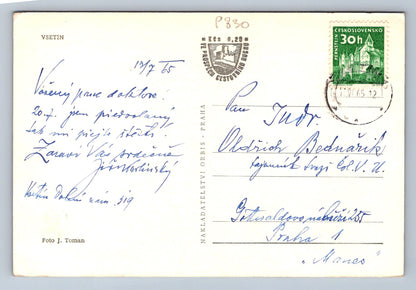 P830
VSETÍN
Kčs 0,20
VE PROSPĚCH CESTOVNÍHO RUCHU
ČESKOSLOVENSKO
30h
13/7 65
Vážený pane doktore!
20.7. jsem předvolaný
tak mi přejte štěstí!
Zdraví Vás srdečně
Vsetín Dolní nám. 319
Foto J. Toman
NAKLADATELSTVÍ ORBIS - PRAHA
Pan Judr
Oldřich Bednařík
tajemník Svazu čsl. V. U.
Gottwaldovo nábřeží
Praha 1
„Manes"